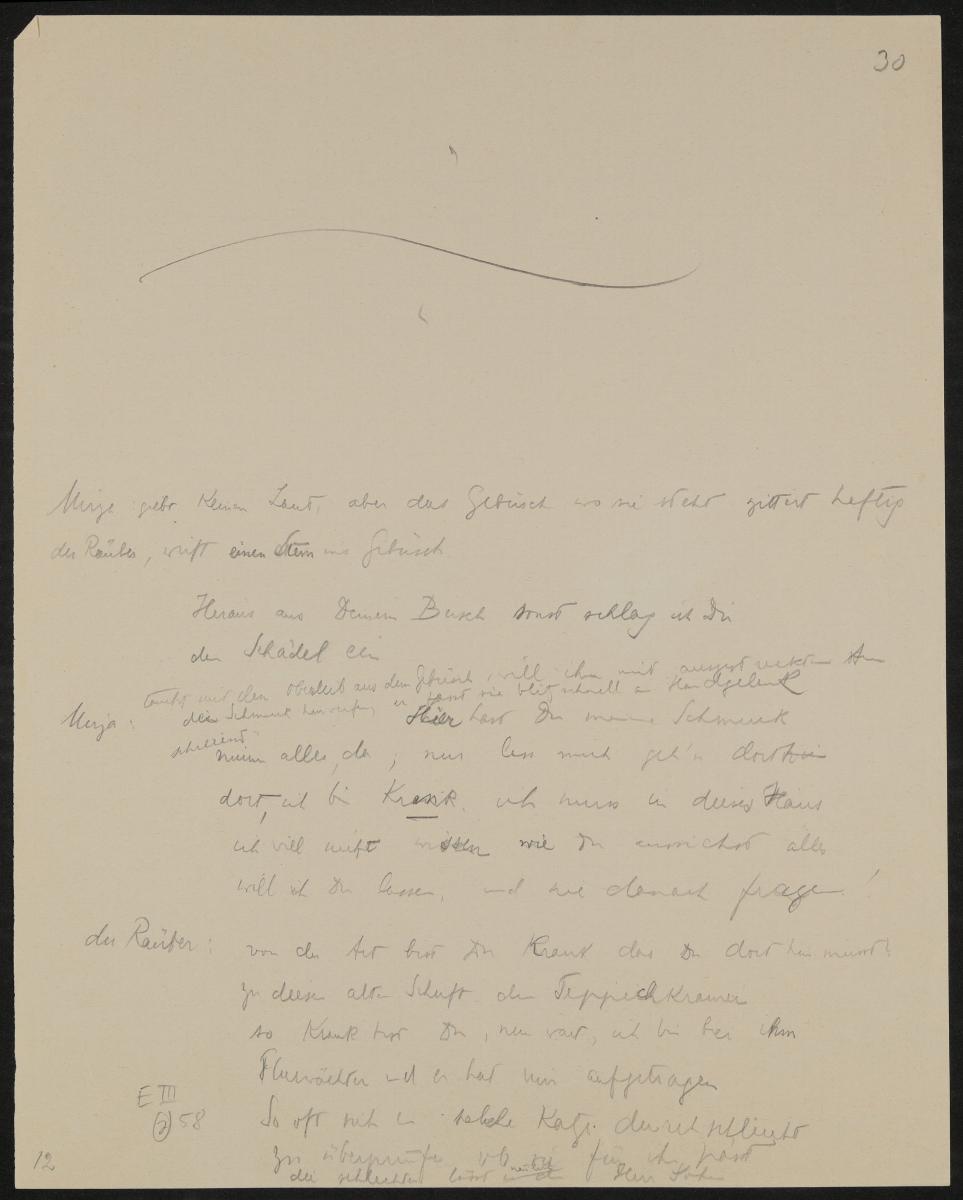 30
Mirja gibt Keinen Laut, aber das Gebüsch wo sie steht zittert heftig
der Räuber, wirft einen Stein ins Gebüsch
Heraus aus Deinem Busch sonst schlag ich Dir
den Schädel ein
taucht mit dem Oberleib aus dem Gebüsch, will ihm mit
den Schmuck er fasst sie blitzschnell am Handgelenk
Mirja: Hier hast Du meinen Schmuck
schreiend
nimm alles, da, nur lass mich geh'n
dort, ich bin Krank, ich muss in dieses Haus
ich will nicht wissen wie Du aussiehst alles
will ich Dir lassen, und nie danach fragen!
der Räuber: von der Art bist Du Krank das Du dort hin musst?
zu diesem alten Schuft dem Teppichkrämer
so Krank bist Du, nun wart, ich bin bei ihm
Flurwächter und er hat mir aufgetragen
So oft sich eine solche Katze durchschleicht
zu überprüfen ob sie für ihn passt
die schlechten lässt Herr
E III
58
12